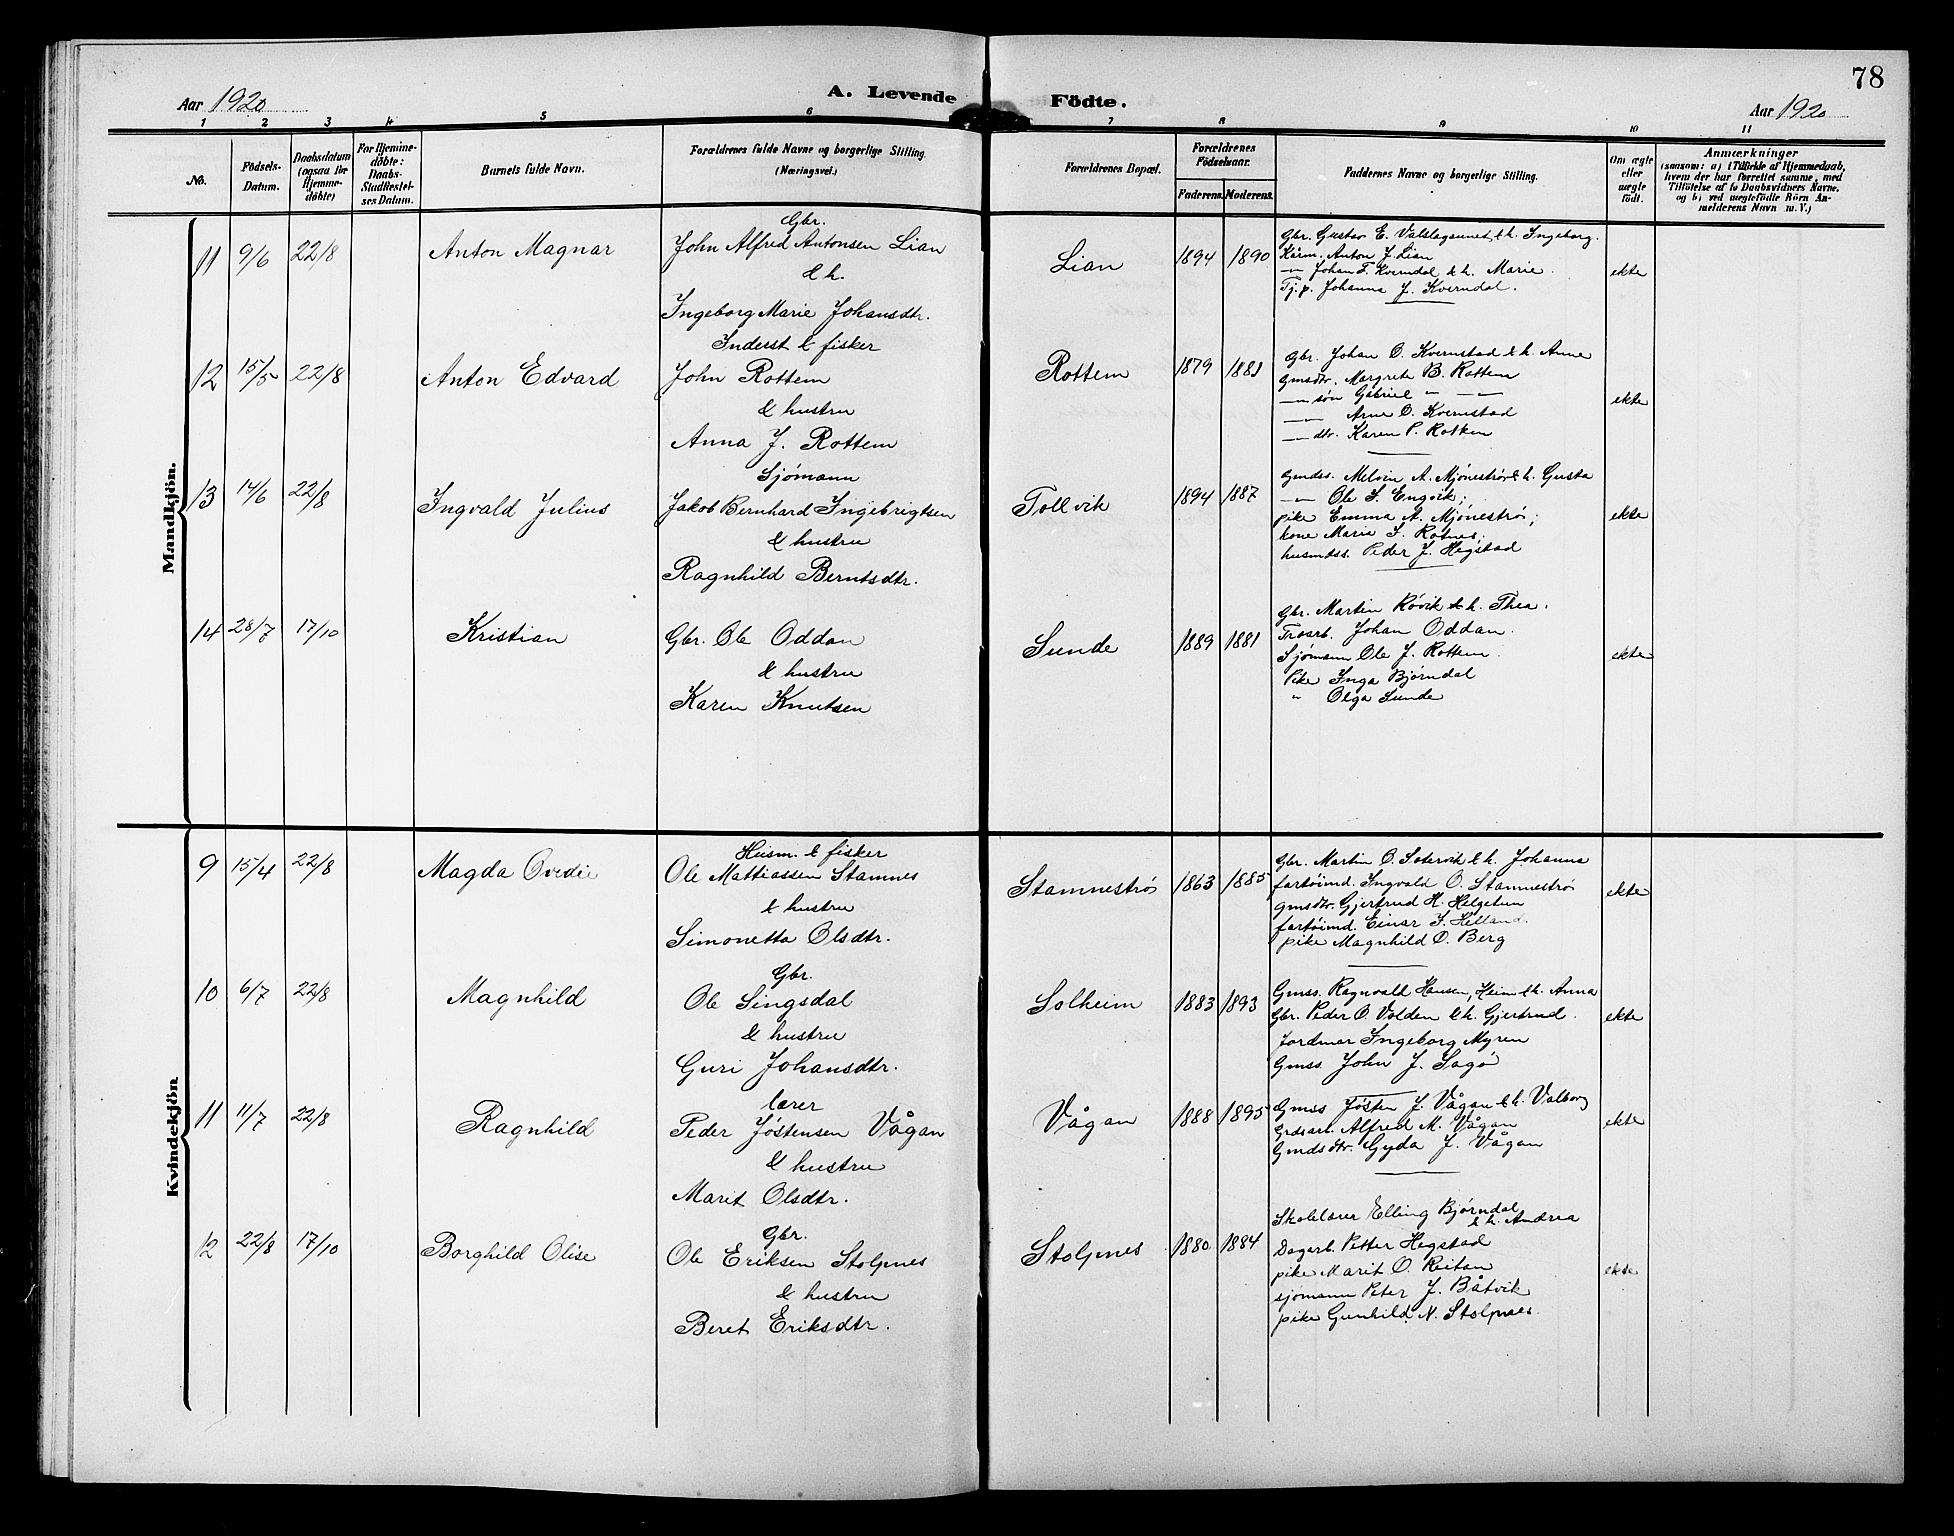 78
Aar 1920
A. Levende
Födte.
Aar 1920
1 2 3 4 5 6 7 8 9 10 11
No.
Födsels-
Datum.
Daabsdatum
(ogsaa for
Hjemme-
döbte)
For Hjemme-
döbte:
Daabs-
Stadfæstel-
ses Datum.
Barnets fulde Navn.
Forældrenes fulde Navne og borgerlige Stilling.
(Næringsvei.)
Forældrenes Bopæl.
Forældrenes
Födselsaar.
Faderens. Moderens.
Faddernes Navne og borgerlige Stilling.
Om ægte
eller
uægte
födt.
Anmærkninger
(saasom: a) i Tilfælde af Hjemmedaab,
hvem der har forrettet samme, med
Tilföielse af to Daabsvidners Navne,
og b) ved uægtefödte Börn An-
melderens Navn m. V.)
Mandkjön.
11 9/6 22/8
Anton Magnar
Gbr.
John Alfred Antonsen Lian
& h.
Ingeborg Marie Johansdtr.
Lian
1894 1890
Gbr. Gustav E. Valslagunnet & h. Ingeborg.
Kårm. Anton J. Lian
— " — Johan F. Kverndal & h. Marie.
Tj.p. Johanna J. Kverndal.
ekte
12 15/5 22/8
Anton Edvard
Inderst & fisker
John Rottem
& hustru
Anna J. Rottem
Rottem
1879 1881
Gbr. Johan O. Kvernstad & h. Anne
gmsdtr. Margrete B. Rottem
— " — søn Gabriel — " — — " —
— " — Arne O. Kvernstad
— " — dtr. Karen P. Rottem
ekte
13 14/6 22/8
Ingvald Julius
Sjømann
Jakob Bernhard Ingebrigtsen
& hustru
Ragnhild Berntsdtr.
Tollvik
1894 1887
Gmdss. Melvin A. Mjønestrø & h. Gusta
— " — Ole S. Engvik;
pike Emma A. Mjønestrø;
kone Marie S. Rotnes;
husmdss. Peder J. Hegstad
ekte
14 28/7 17/10
Kristian
Gbr. Ole Oddan
& hustru
Karen Knutsen
Sunde
1889 1881
Gbr. Martin Røvik & h. Thea.
Johan Oddan.
Sjømann Ole J. Rottem.
Pike Inga Bjørndal
" Olga Sunde
ekte
Kvindekjön
9 15/4 22/8
Magda Ovidie
Husm. & fisker
Ole Mattiassen Stamnes
& hustru
Simonetta Olsdtr.
Stamnestrø
1863 1885
Gbr. Martin O. Sætervik & h. Johanna
fartøimd. Ingvald O. Stamnestrø
gmsdtr. Gjertrud H. Helgetun
fartøimd. Einar J. Helland.
pike Magnhild O. Berg
ekte
10 6/7 22/8
Magnhild
Gbr.
Ole Singsdal
& hustru
Guri Johansdtr.
Solheim
1883 1893
Gmss. Ragnvald Hansen, Heim & h. Anna
Gbr. Peder O. Volden & h. Gjertrud.
Jordmor Ingeborg Myren
Gmss. John J. Sagø
ekte
11 11/7 22/8
Ragnhild
lærer
Peder Jöstensen Vågan
& hustru
Marit Olsdtr.
Vågan
1888 1895
Gmss Jøsten J. Vågan & h. Valborg
Grdsarb. Alfred M. Vågan
Gmdsdtr. Gyda J. Vågan
ekte
12 22/8 17/10
Borghild Olise
Gbr.
Ole Eriksen Stolpnes
& hustru
Beret Eriksdtr.
Stolpnes
1880 1884
Skolelærer Elling Bjørndal
& h. Andrea
Dagarb. Petter Hegstad
pike Marit O. Reitan
sjømann Peter J. Båtvik
pike Gunhild N. Stolpnes.
ekte